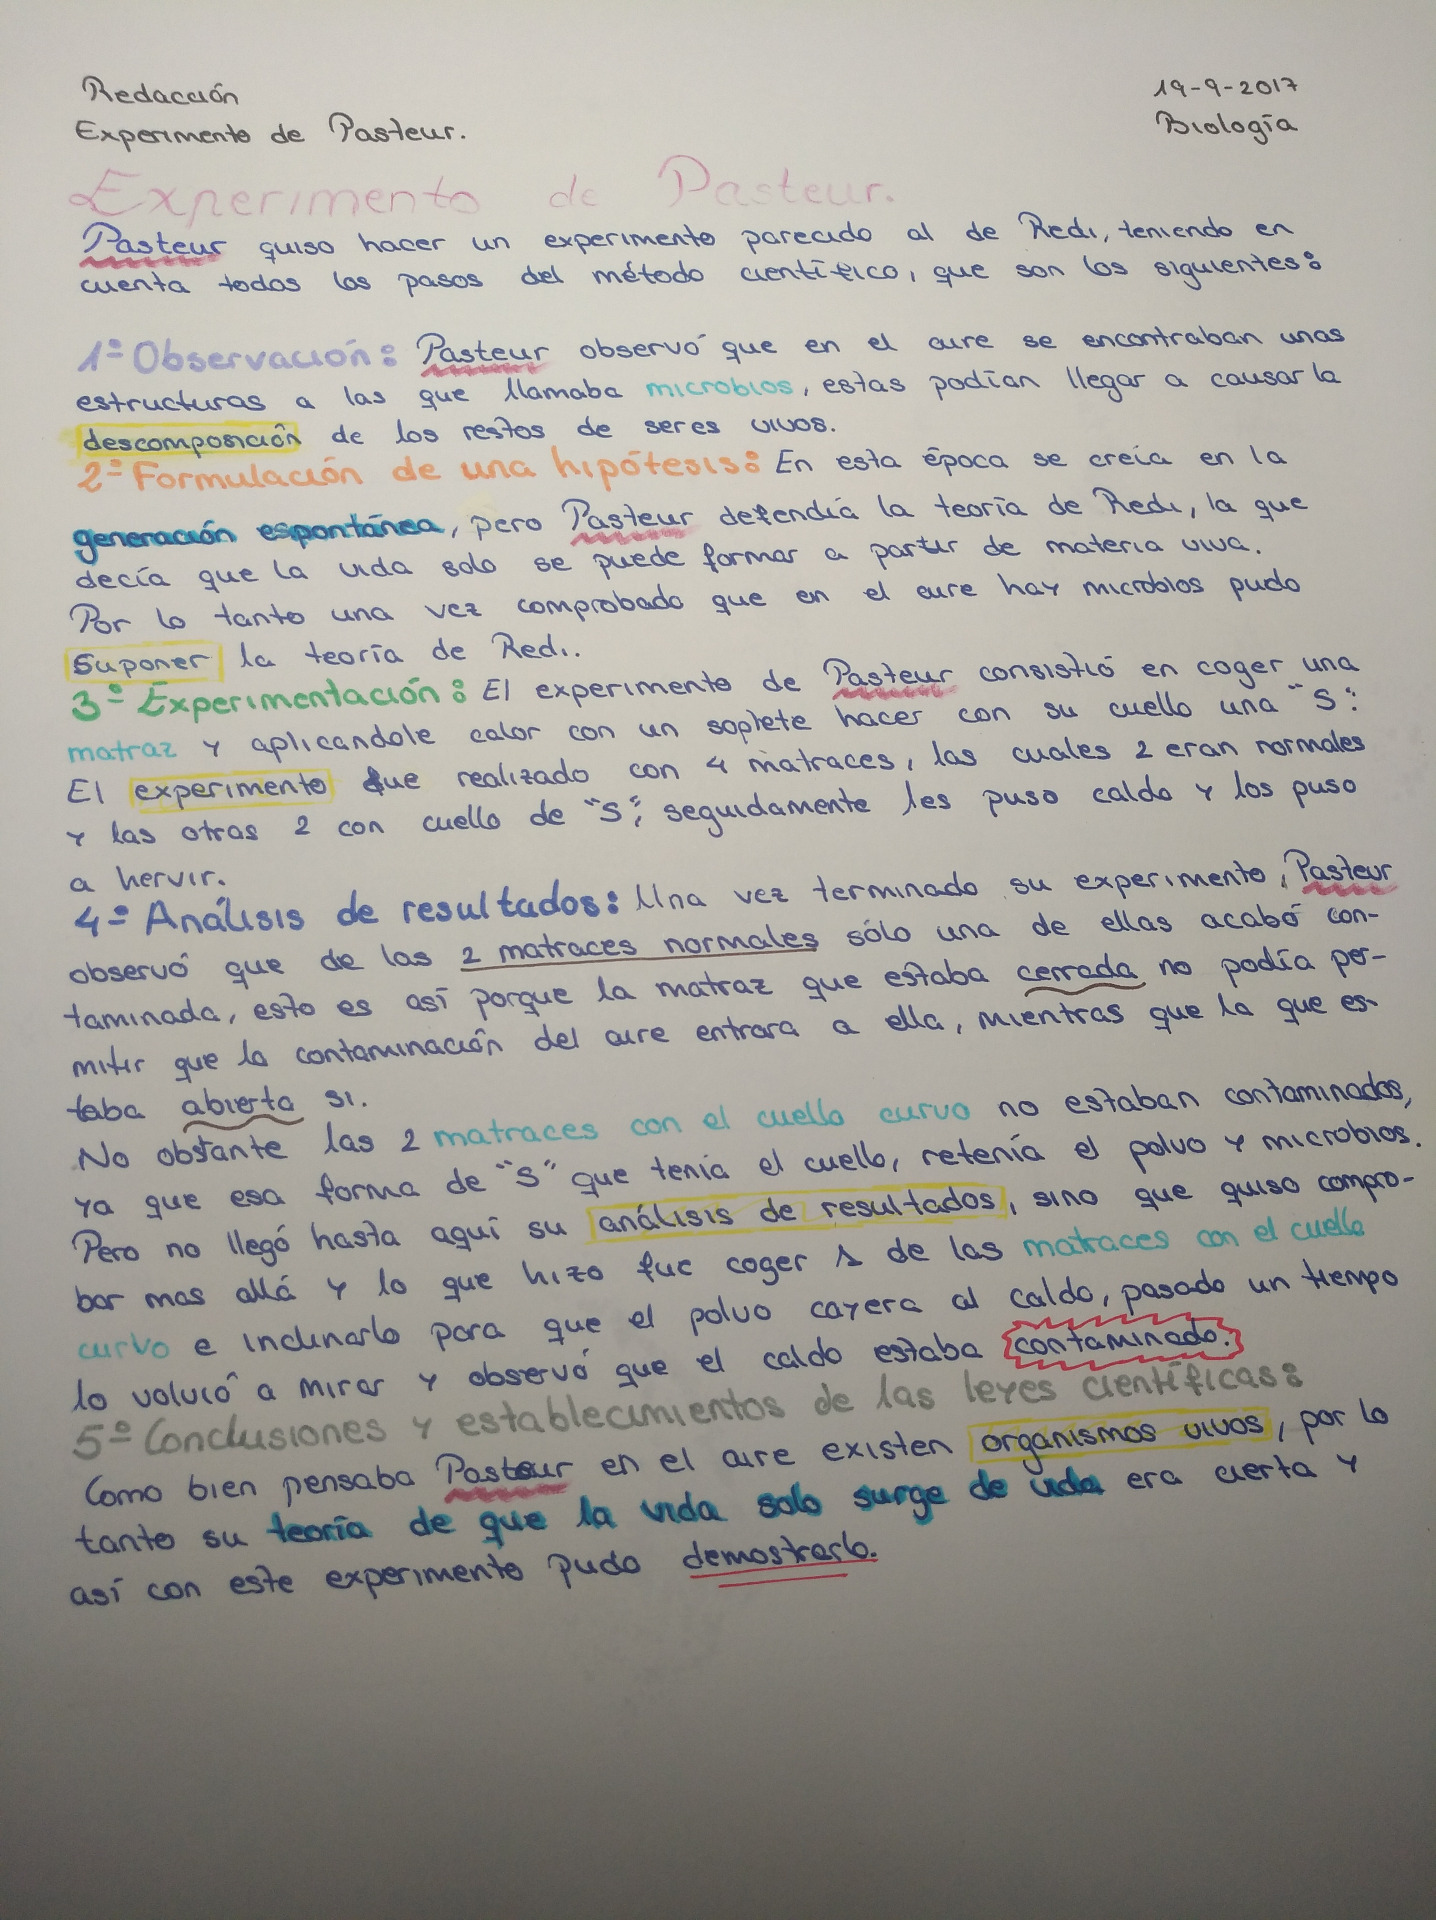 Redacción
19-9-2017
Experimento de Pasteur.
Biología
Experimento de Pasteur.
Pasteur quiso hacer un experimento parecido al de Redi, teniendo en
cuenta todos los pasos del método científico, que son los siguientes:
1º Observación: Pasteur observó que en el aire se encontraban unas
estructuras a las que llamaba microbios, estas podían llegar a causar la
descomposición de los restos de seres vivos.
2º Formulación de una hipótesis: En esta época se creía en la
generación espontánea, pero Pasteur defendía la teoría de Redi, la que
decía que la vida solo se puede formar a partir de materia viva.
Por lo tanto una vez comprobado que en el aire hay microbios pudo
suponer la teoría de Redi.
3º Experimentación: El experimento de Pasteur consistió en coger una
matraz y aplicandole calor con un soplete hacer con su cuello una "S".
El experimento fue realizado con 4 matraces, las cuales 2 eran normales
y las otras 2 con cuello de "S", seguidamente les puso caldo y los puso
a hervir.
4º Análisis de resultados: Una vez terminado su experimento, Pasteur
observó que de las 2 matraces normales sólo una de ellas acabó con-
taminada, esto es así porque la matraz que estaba cerrada no podía per-
mitir que la contaminación del aire entrara a ella, mientras que la que es-
taba abierta si.
No obstante las 2 matraces con el cuello curvo no estaban contaminados,
ya que esa forma de "S" que tenía el cuello, retenía el polvo y microbios.
Pero no llegó hasta aquí su análisis de resultados, sino que quiso compro-
bar mas allá y lo que hizo fue coger 1 de las matraces con el cuello
curvo e inclinarlo para que el polvo cayera al caldo, pasado un tiempo
lo volvió a mirar y observó que el caldo estaba contaminado.
5º Conclusiones y establecimientos de las leyes científicas:
Como bien pensaba Pasteur en el aire existen organismos vivos, por lo
tanto su teoría de que la vida solo surge de vida era cierta y
así con este experimento pudo demostrarlo.